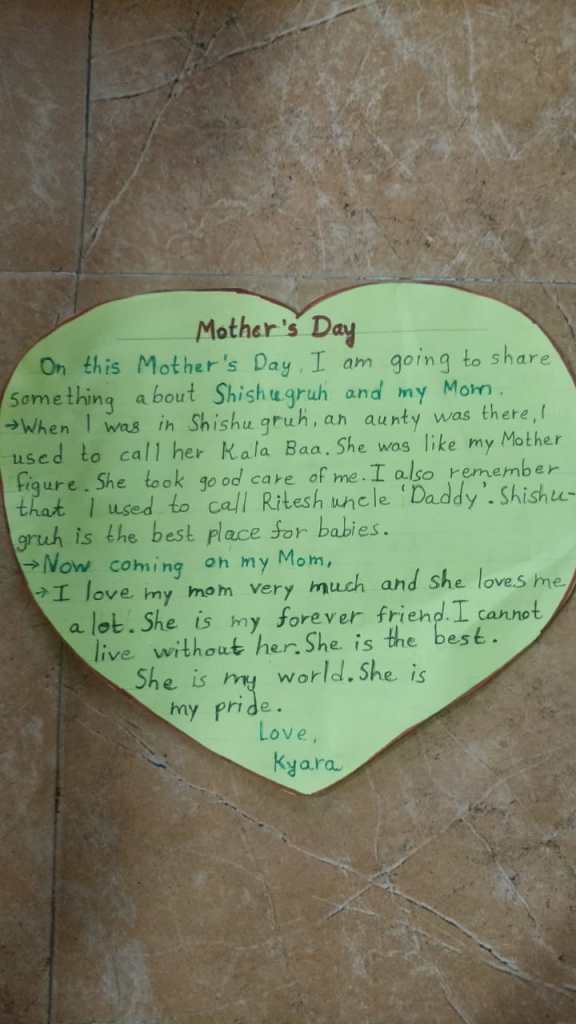 Mother's Day
On this Mother's Day, I am going to share
something about Shishugruh and my Mom.
→When I was in Shishugruh, an aunty was there, I
used to call her Kala Baa. She was like my Mother
figure. She took good care of me. I also remember
that I used to call Ritesh uncle 'Daddy'. Shishu-
gruh is the best place for babies.
→Now coming on my Mom,
→I love my mom very much and she loves me
a lot. She is my forever friend. I cannot
live without her. She is the best.
She is my world. She is
my pride.
Love,
Kyara